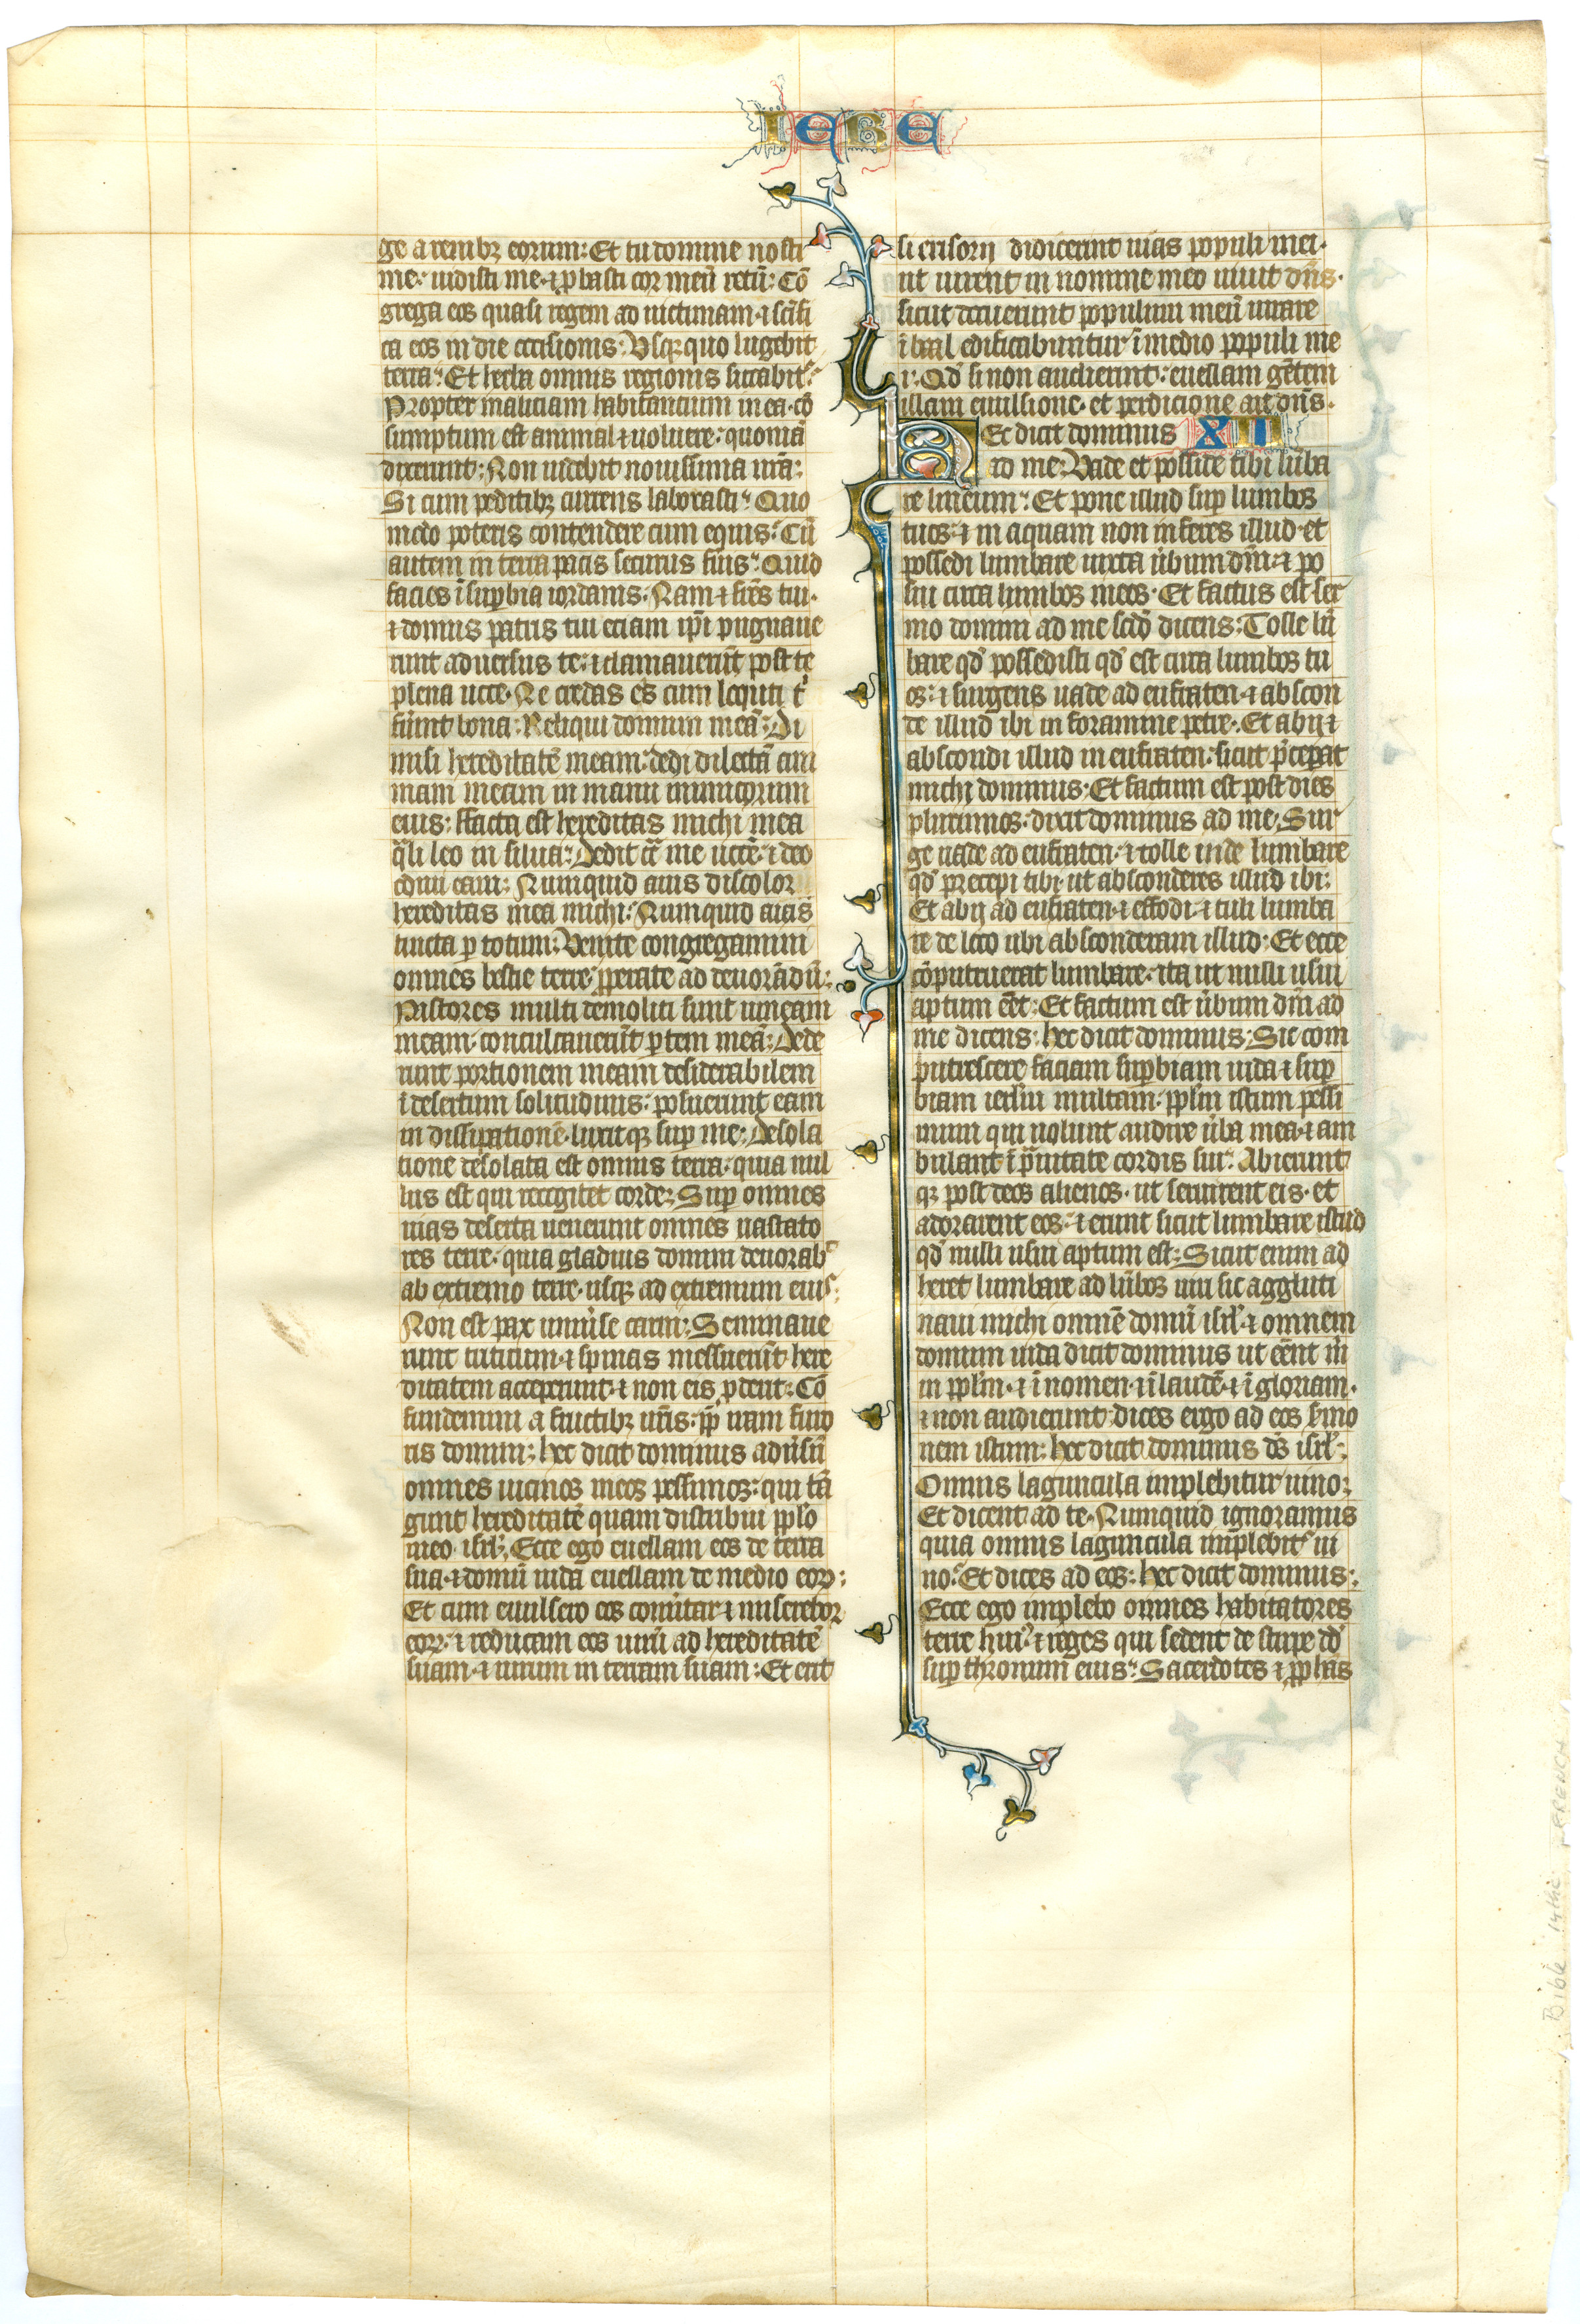 IERE
ge a renibꝫ eorum: Et tu domine nosti
me: uidisti me ⁊ ꝓbasti cor meū tecū: Cō
grega eos quasi gregem ad uictimam ⁊ sc̄ifi
ca eos in die occisionis: Vsq̨quo lugebit
terra: Et herba omnis regionis siccabit᷑:
Propter maliciam habitancium in ea· cō
sumptum est animal ⁊ uolucre· quoniā
dixerunt: Non uidebit nouissima nr̄a:
Si cum peditibꝫ currens laborasti: Quo
modo poteris contendere cum equis: Cū
autem in terra pacis securus fu̾is: Quid
facies ī suꝑbia iordanis· Nam ⁊ fr̄es tui·
⁊ domus patris tui eciam ip̄i pugnaue
runt aduersus te: ⁊ clamauerūt post te
plena uoce· Ne credas eis cum locuti t'
fu̾int bona: Reliqui domum meā: Di
misi hereditatē meam: dedi dilectā ani
mam meam in manu inimicorum
eius: ffacta est hereditas michi mea
q̄si leo in silua: Dedit cͣ me uocē· ⁊ deo
odiui eam: Numquid auis discolor
hereditas mea michi: Numquid auis
tincta ꝑ totum: Venite congregamini
omnes bestie terre· ꝓperate ad deuorādū:
Pastores multi demoliti sunt uineam
meam· conculcauerūt ꝑtem meā: Dede
runt portionem meam desiderabilem
ī desertum solitudinis: posuerunt eam
in dissipationē· luxitq̨ suꝑ me: Desola
tione desolata est omnis terra· quia nul
lus est qui recogitet corde: Suꝑ omnes
uias deserta uenerunt omnes uastato
res terre· quia gladius domini deuorab᷑
ab extremo terre· usq̨ ad extremum eius:
Non est pax uniu̾se carni: Seminaue
runt triticum· ⁊ spinas messuerūt here
ditatem acceperunt· ⁊ non eis ꝓderit: Cō
fundemini a fructibꝫ ur̄is· ꝓp̄ iram furo
ris domini: hec dicit dominus adu̾sū
omnes uicinos meos pessimos: qui tā
gunt hereditatē quam distribui pp̄lo
meo· isrl̄: Ecce ego euellam eos de terra
sua· ⁊ domū iuda euellam de medio eoꝝ:
Et cum euulsero eos conu̾tar ⁊ miserebor
eoꝝ· ⁊ reducam eos uirū ad hereditatē
suam· ⁊ uirum in terram suam: Et erit
si erisorij didicerint uias populi mei·
ut iurent in nomine meo uiuit dn̄s·
sicut docuerunt populum meū iurare
ī baal edificabuntur ī medio populi me
i· Qd̄ si non audierint: euellam gētem
illam euulsione· et perdicione ait dn̄s·
HEc dicit dominus XII
ad me: Vade et posside tibi lūba
re lineum: Et pone illud suꝑ lumbos
tuos: ⁊ in aquam non inferes illud· et
possedi lumbare iuxta u̾bum dn̄i: ⁊ po
sui circa lumbos meos· Et factus est ser
mo domini ad me scd̄o dicens: Tolle lū
bare qd̄ possedisti qd̄ est circa lumbos tu
os: ⁊ surgens uade ad eufraten· ⁊ abscon
de illud ibi in foramine petre· Et abij ⁊
abscondi illud in eufraten: sicut p̄cepat
michi dominus· Et factum est post dies
plurimos· dixit dominus ad me· Sur
ge uade ad eufraten· ⁊ tolle inde lumbare
qd̄ precepi tibi· ut absconderes illud ibi:
Et abij ad eufraten· ⁊ effodi· ⁊ tuli lumba
re de loco ubi absconderam illud: Et ecce
cōputruerat lumbare· ita ut nulli usui
aptum eēt: Et factum est u̾bum dn̄i ad
me dicens: hec dicit dominus: Sic com
putrescere faciam suꝑbiam iuda ⁊ suꝑ
biam ierlm̄ multam· pp̄lm istum pessi
mum qui nolunt audire u̾ba mea· ⁊ am
bulant ī p̄uitate cordis sui: Abierunt
q̨ post deos alienos· ut seruirent eis· et
adorarent eos· ⁊ erunt sicut lumbare istud
qd̄ nulli usui aptum est: Sicut enim ad
heret lumbare ad lūbos uiri sic aggluti
naui michi omnē domū isrl̄· ⁊ omnem
domum iuda dicit dominus ut eēnt m̄
in pp̄lm· ⁊ ī nomen· ⁊ ī laudē· ⁊ ī gloriam·
⁊ non audierunt· dices ergo ad eos s̾mo
nem istum: hec dicit dominus d̄s isrl̄:
Omnis laguncula implebitur uino:
Et dicent ad te· Numquid ignoramus
quia omnis laguncula implebit᷑ ui
no: Et dices ad eos: hec dicit dominus:
Ecce ego implebo omnes habitatores
terre hui᷒ ⁊ reges qui sedent de stirpe dd̄
suꝑ thronum eius: Sacerdotes ⁊ ꝓphas
Bible 14thc FRENCH